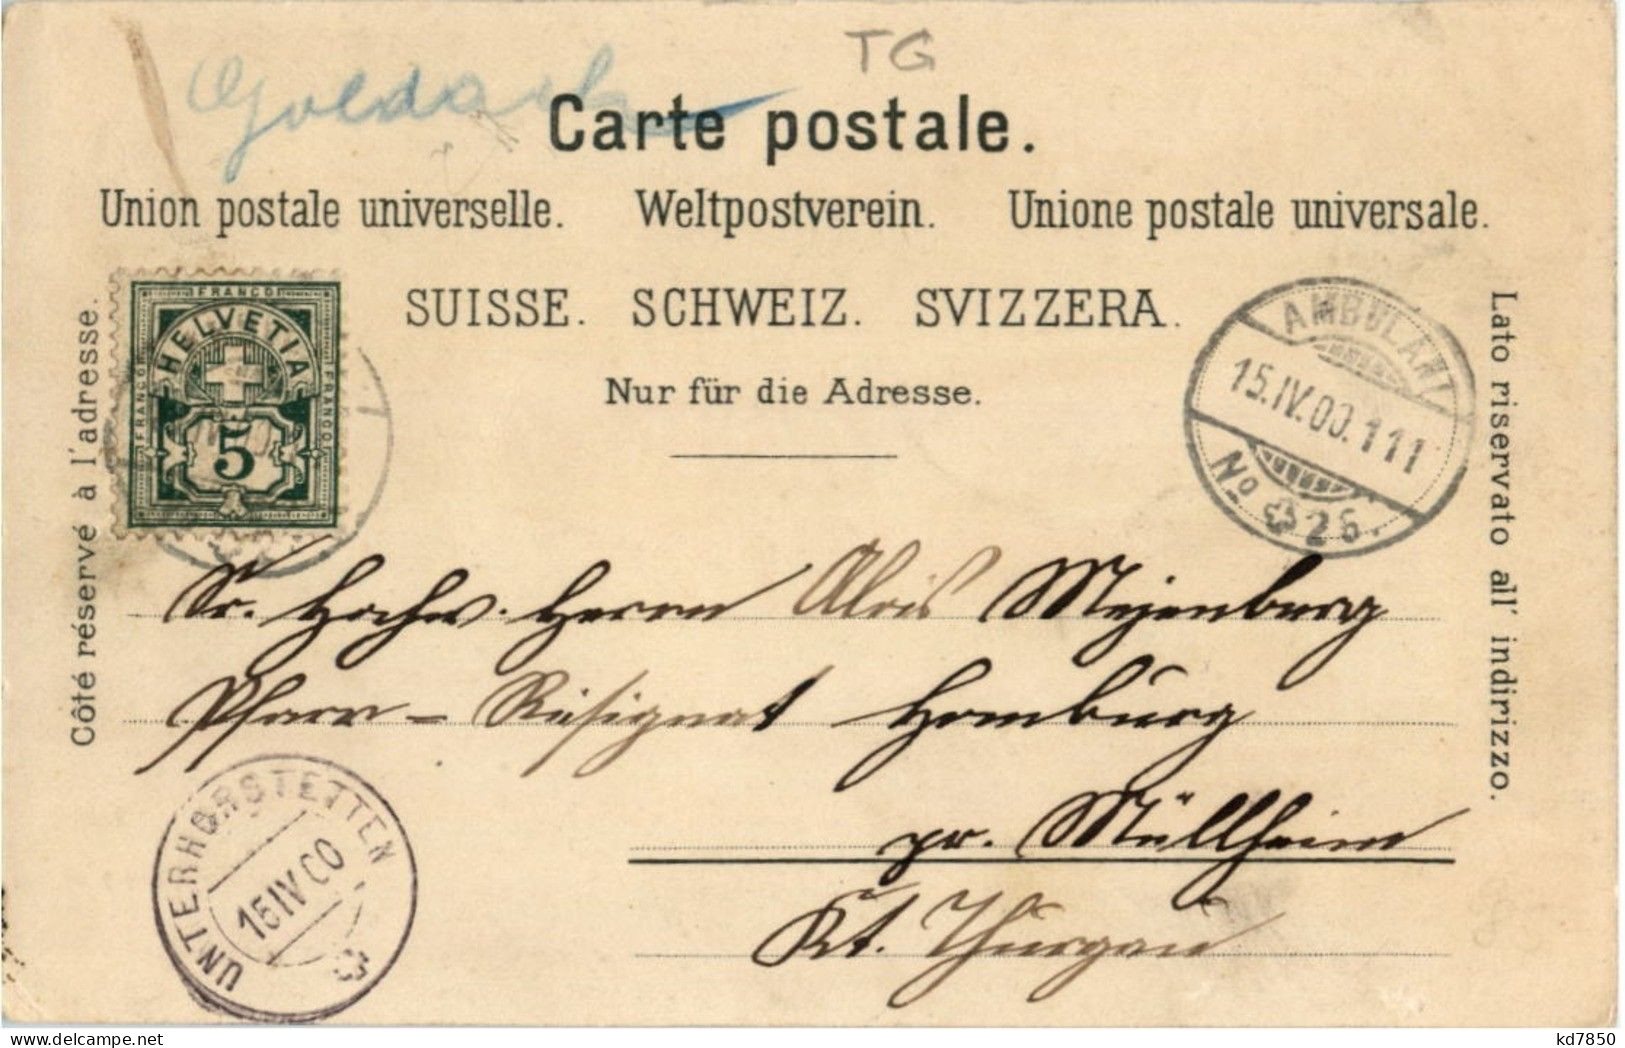 Goldach
TG
Carte postale.
Union postale universelle. Weltpostverein. Unione postale universale.
SUISSE. SCHWEIZ. SVIZZERA.
Nur für die Adresse.
Côté réservé à l'adresse.
Lato riservato all' indirizzo.
FRANCO
HELVETIA
FRANCO
FRANCO
5
AMBULANT
15.IV.00.111
No 26.
Sr. Hochw. Herrn Alois Mejenburg
Pfarr-Resignat Homburg
pr. Müllheim
Kt. Thurgau
UNTERHÖRSTETTEN
15 IV 00
kd7850